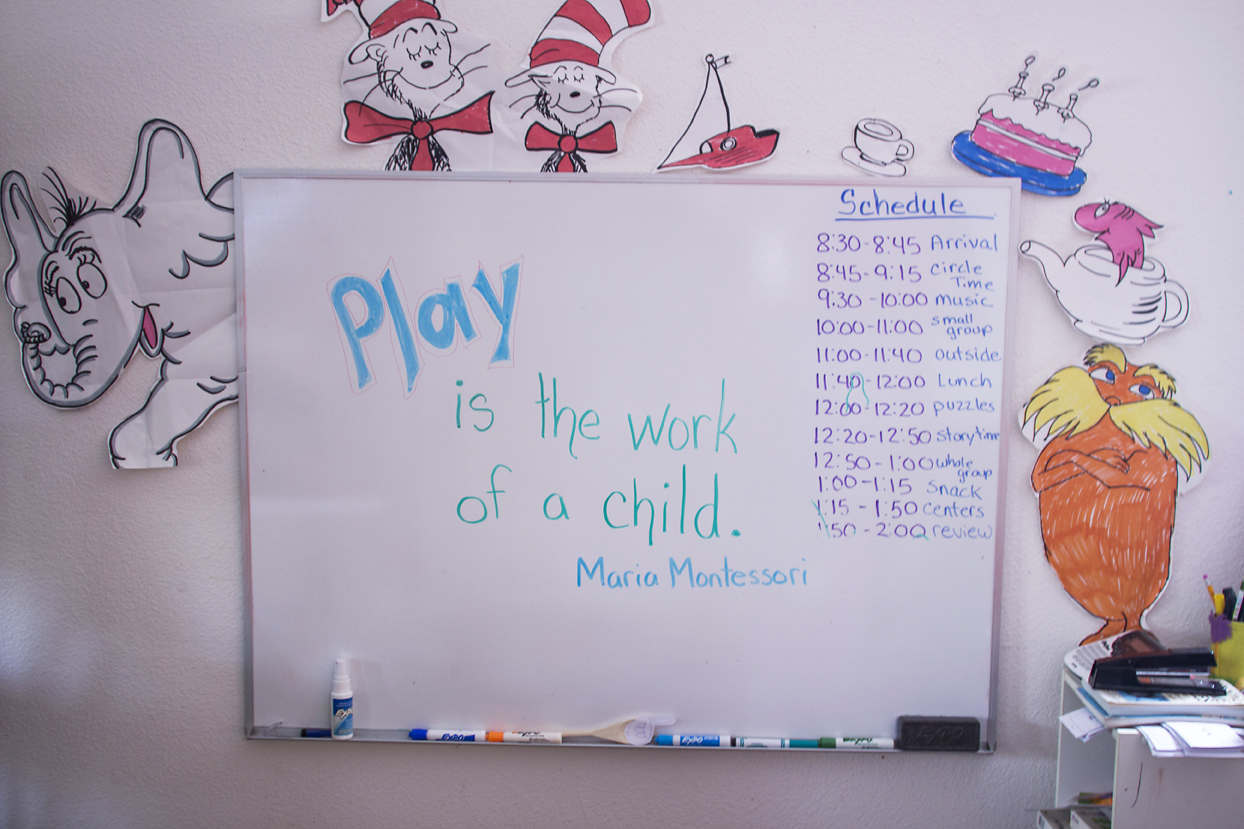 Play
is the work
of a child.
Maria Montessori
Schedule
8:30-8:45 Arrival
8:45-9:15 Circle
Time
9:30-10:00 music
10:00-11:00 small
group
11:00-11:40 outside
11:40-12:00 Lunch
12:00-12:20 puzzles
12:20-12:50 storytime
12:50-1:00 whole
group
1:00-1:15 Snack
1:15-1:50 centers
1:50-2:00 review
EXPO
EXPO
EXPO